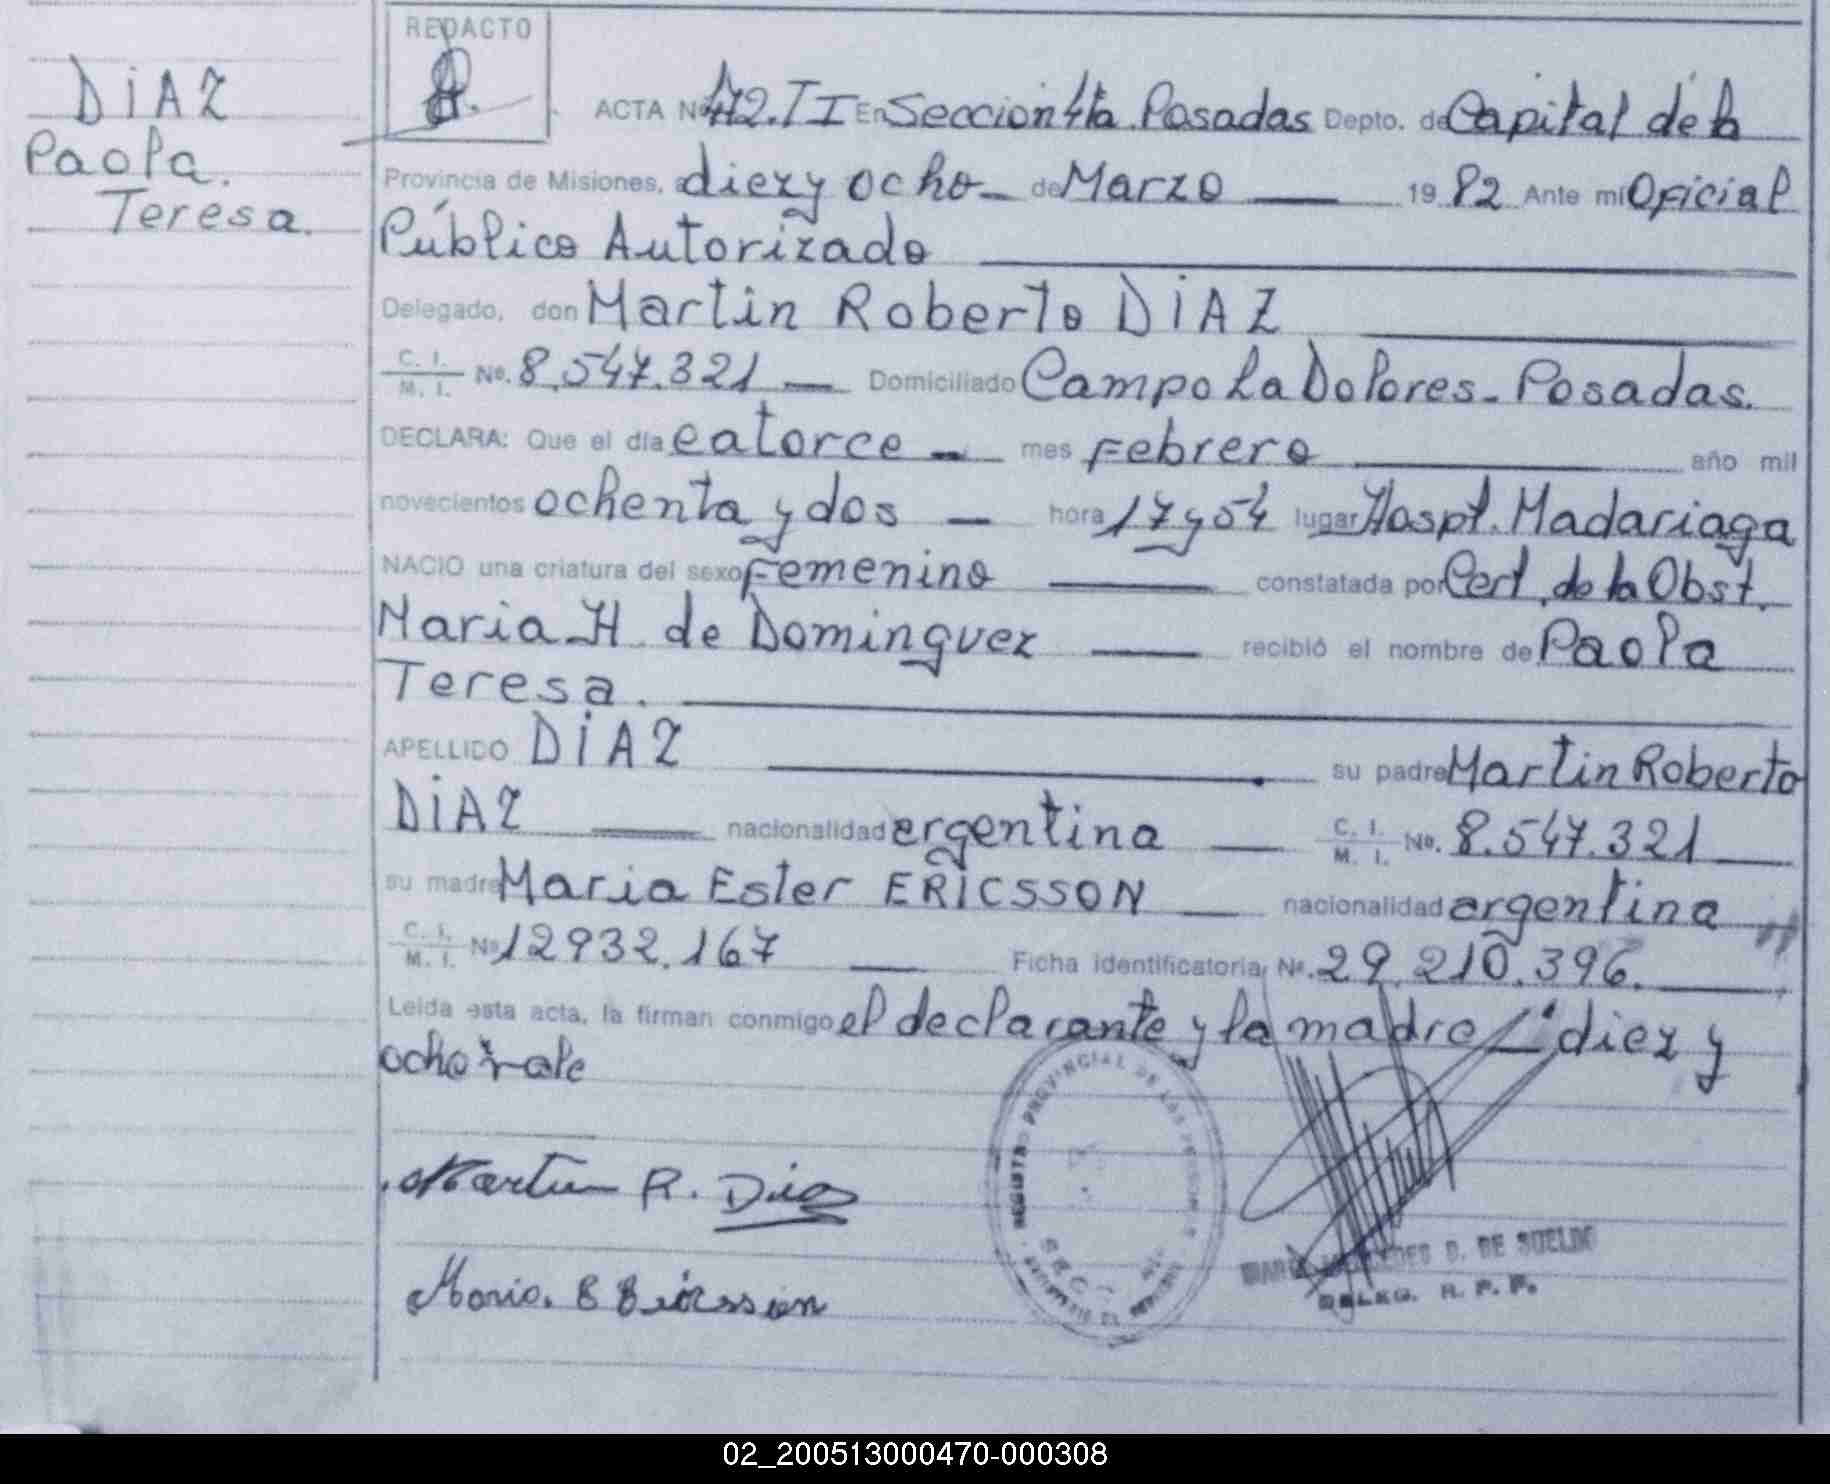 DiAZ
Paola.
Teresa.
REDACTO
ACTA Nº 412.II En Seccion 4ta. Posadas Depto. de Capital de la
Provincia de Misiones, a diez y ocho - de Marzo 1982 Ante mí Oficial
Público Autorizado
Delegado, don Martin Roberto DiAZ
C. I. / M. I. Nº. 8.547.321 Domiciliado Campo La Dolores - Posadas.
DECLARA: Que el día catorce - mes Febrero año mil
novecientos ochenta y dos - hora 17 y 54 lugar Hospt. Madariaga
NACIO una criatura del sexo Femenino constatada por Cert. de la Obst.
Maria H. de Dominguez recibió el nombre de Paola
Teresa.
APELLIDO DiAZ su padre Martin Roberto
DiAZ nacionalidad argentina C. I. / M. I. Nº. 8.547.321
su madre Maria Ester ERiCSSON nacionalidad argentina
C. I. / M. I. Nº 12932.167 Ficha identificatoria, Nº. 29.210.396.
Leída esta acta, la firman conmigo el declarante y la madre diez y
ocho vale
Martin R. Diaz
Maria. E Ericsson
REGISTRO PROVINCIAL DE LAS PERSONAS
DE SUELDO
DELEG. R. P. P.
02_200513000470-000308